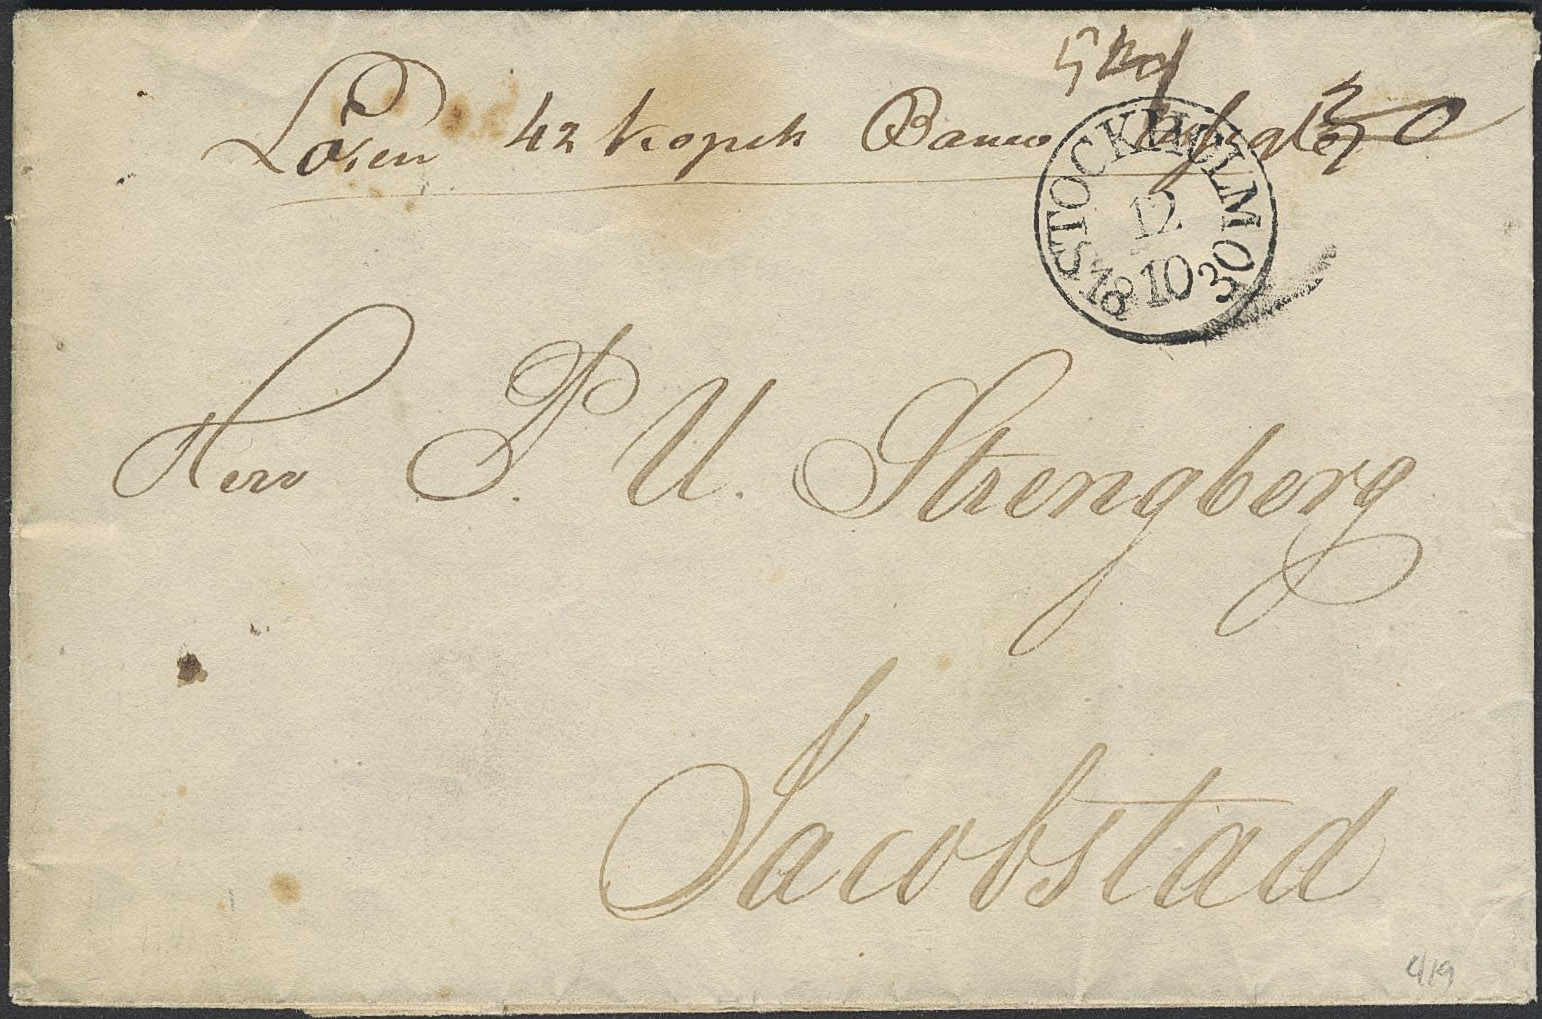 Lösen 42 kopek Banco
STOCKHOLM
12
10
1830
Herr P. U. Strengberg
Jacobstad
4/19